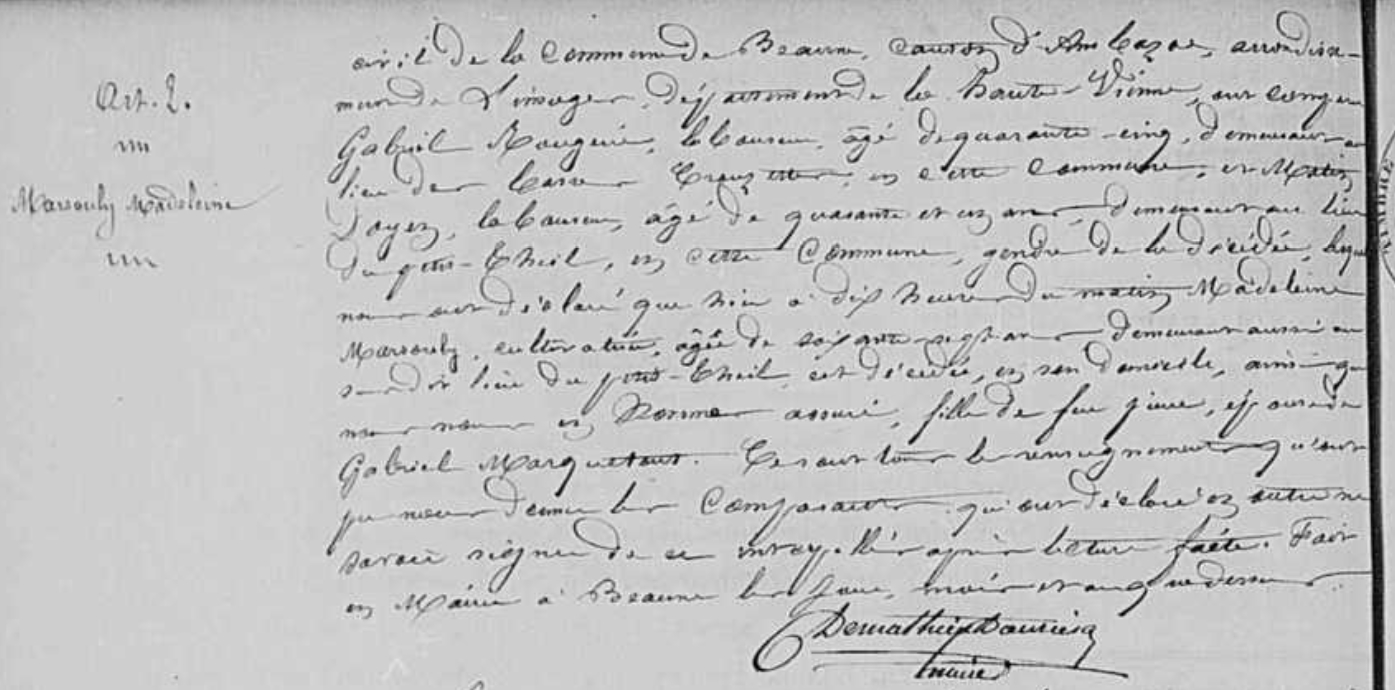 Art. 2.
Marsouly Madeleine
civil de la Commune de Beaune, canton d'Ambazac, arrondisse-
ment de Limoges, département de la haute-Vienne, ont comparu
Gabriel Rougerie, laboureur, âgé de quarante-cinq, demeurant au
lieu des, en cette Commune, et
laboureur, âgé de quarante et un ans, demeurant au lieu
du petit-Theil, en cette Commune, gendre de la décédée, lesquels
nous ont déclaré que hier à dix heures du matin, Madeleine
Marsouly, cultivatrice, âgée de soixante-sept ans demeurant aussi au
susdit lieu du petit-Theil, est décédée, en son domicile, ainsi que
nous nous en sommes assuré, fille de feu, épouse de
Gabriel Marquetout. Ce sont tous les renseignements qu'ont
pu nous donner les Comparants qui ont déclaré en outre ne
savoir signer de ce interpellés après lecture faite. Fait
en Mairie à Beaune les jour, mois et an que dessus.
maire
TIMBRE